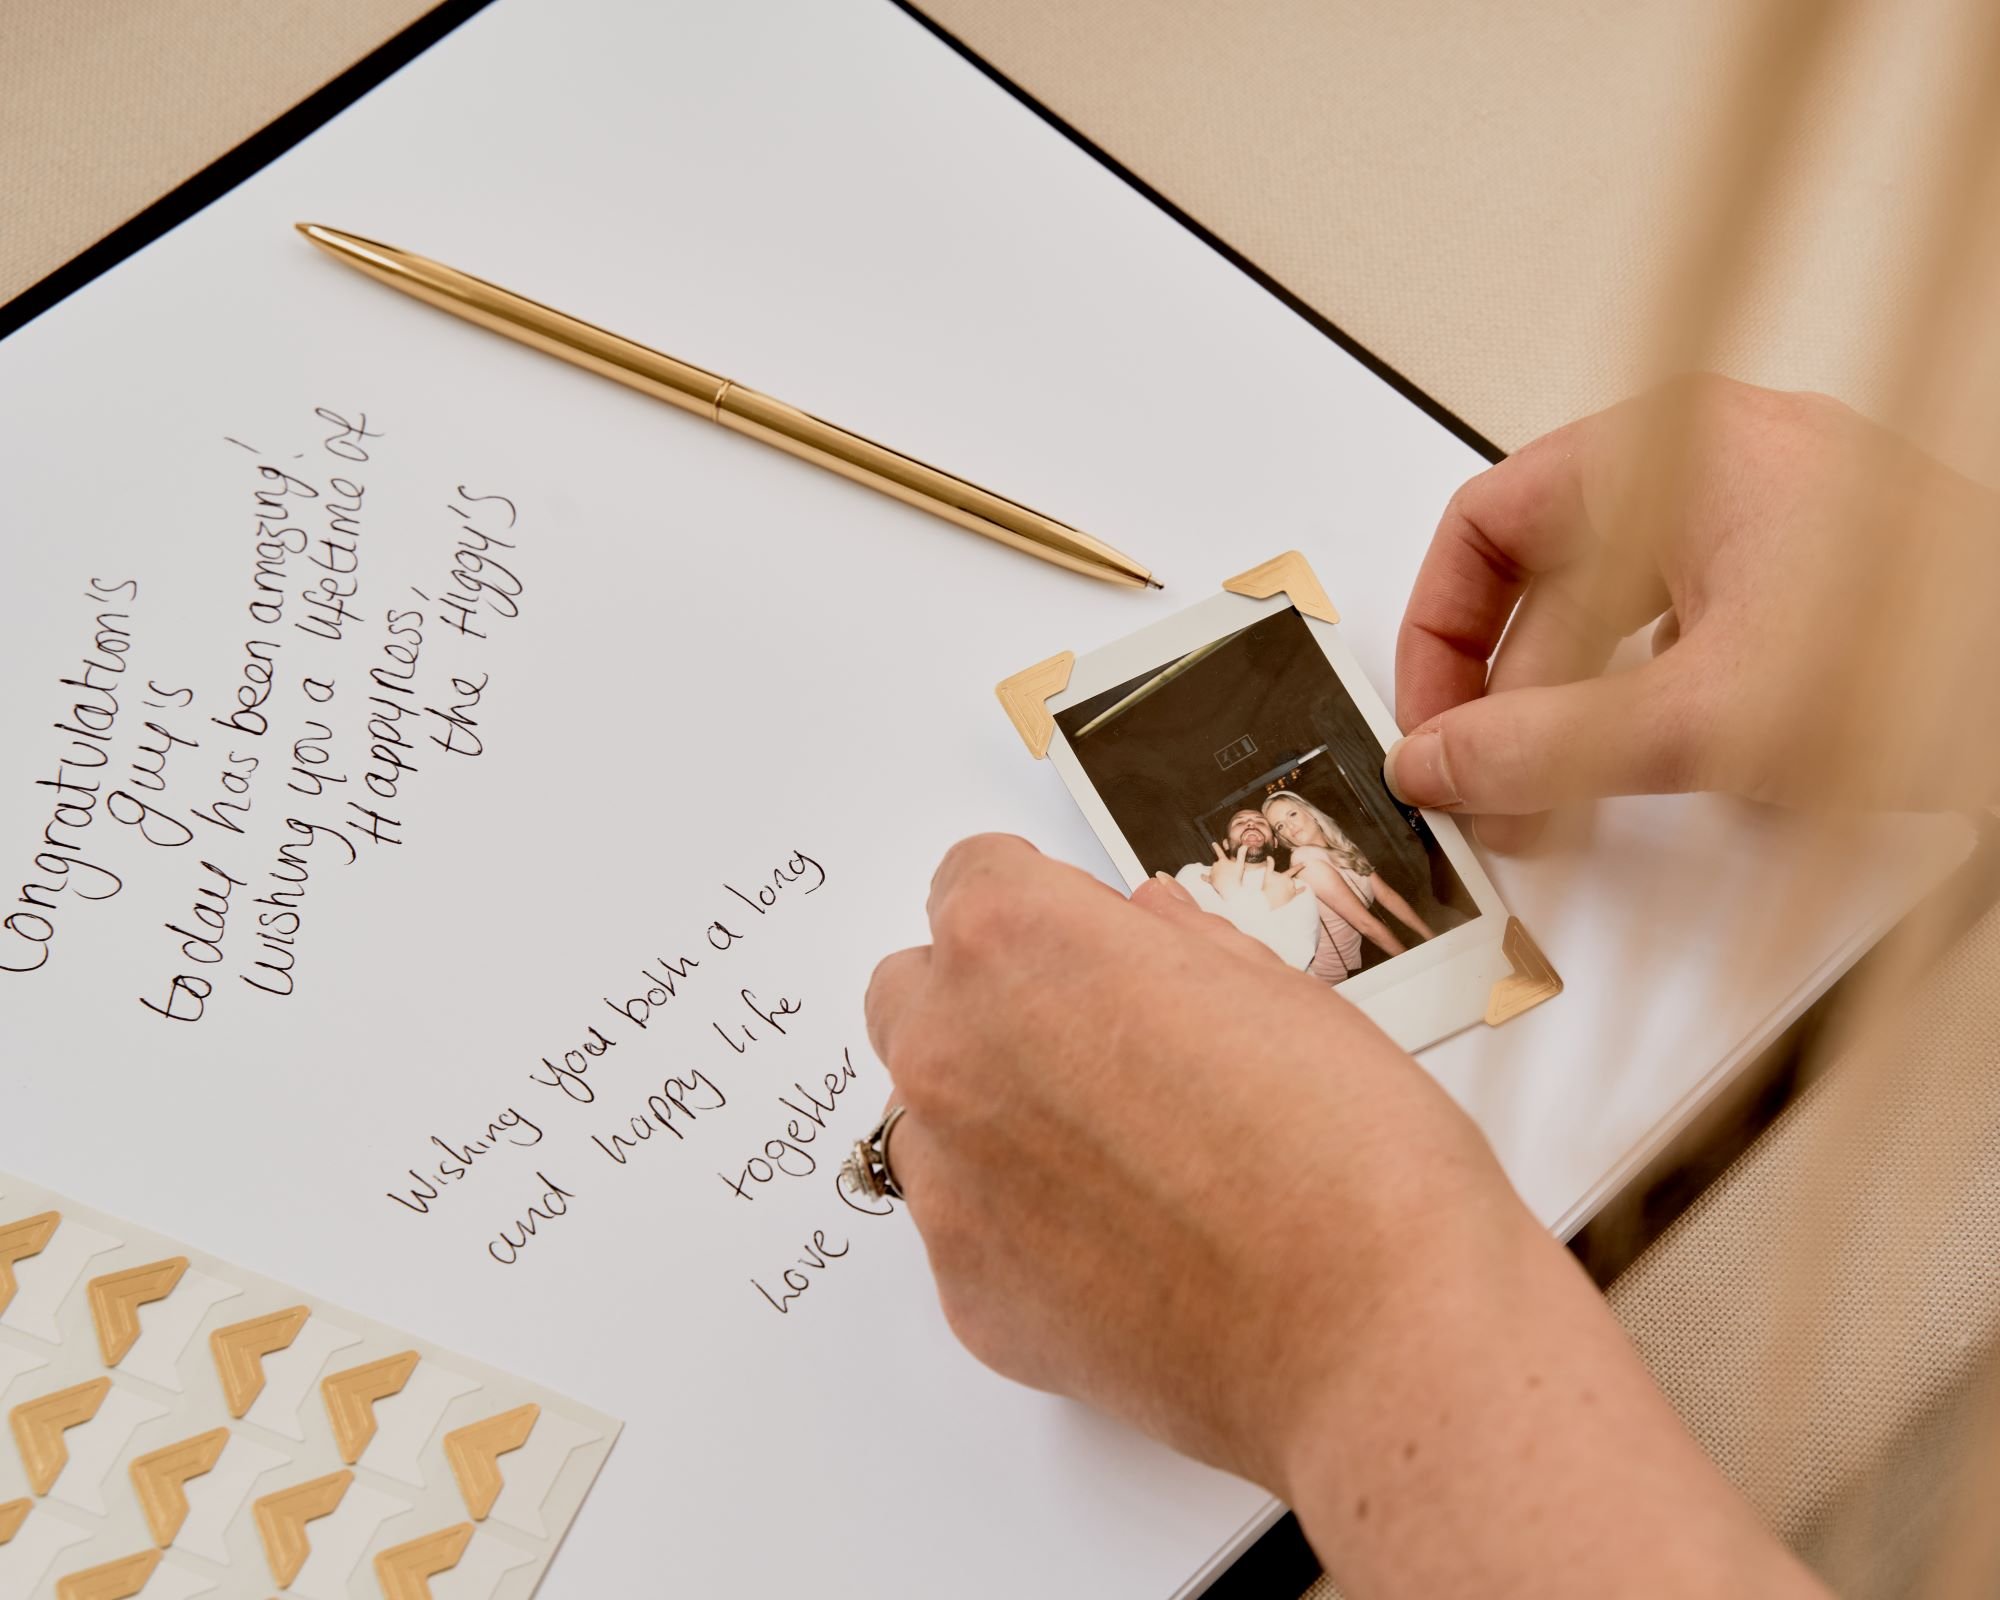 Congratulation's
guy's
today has been amazing!
wishing you a lifetime of
Happyness,
the Higgy's
Wishing you both a long
and happy life
together
love